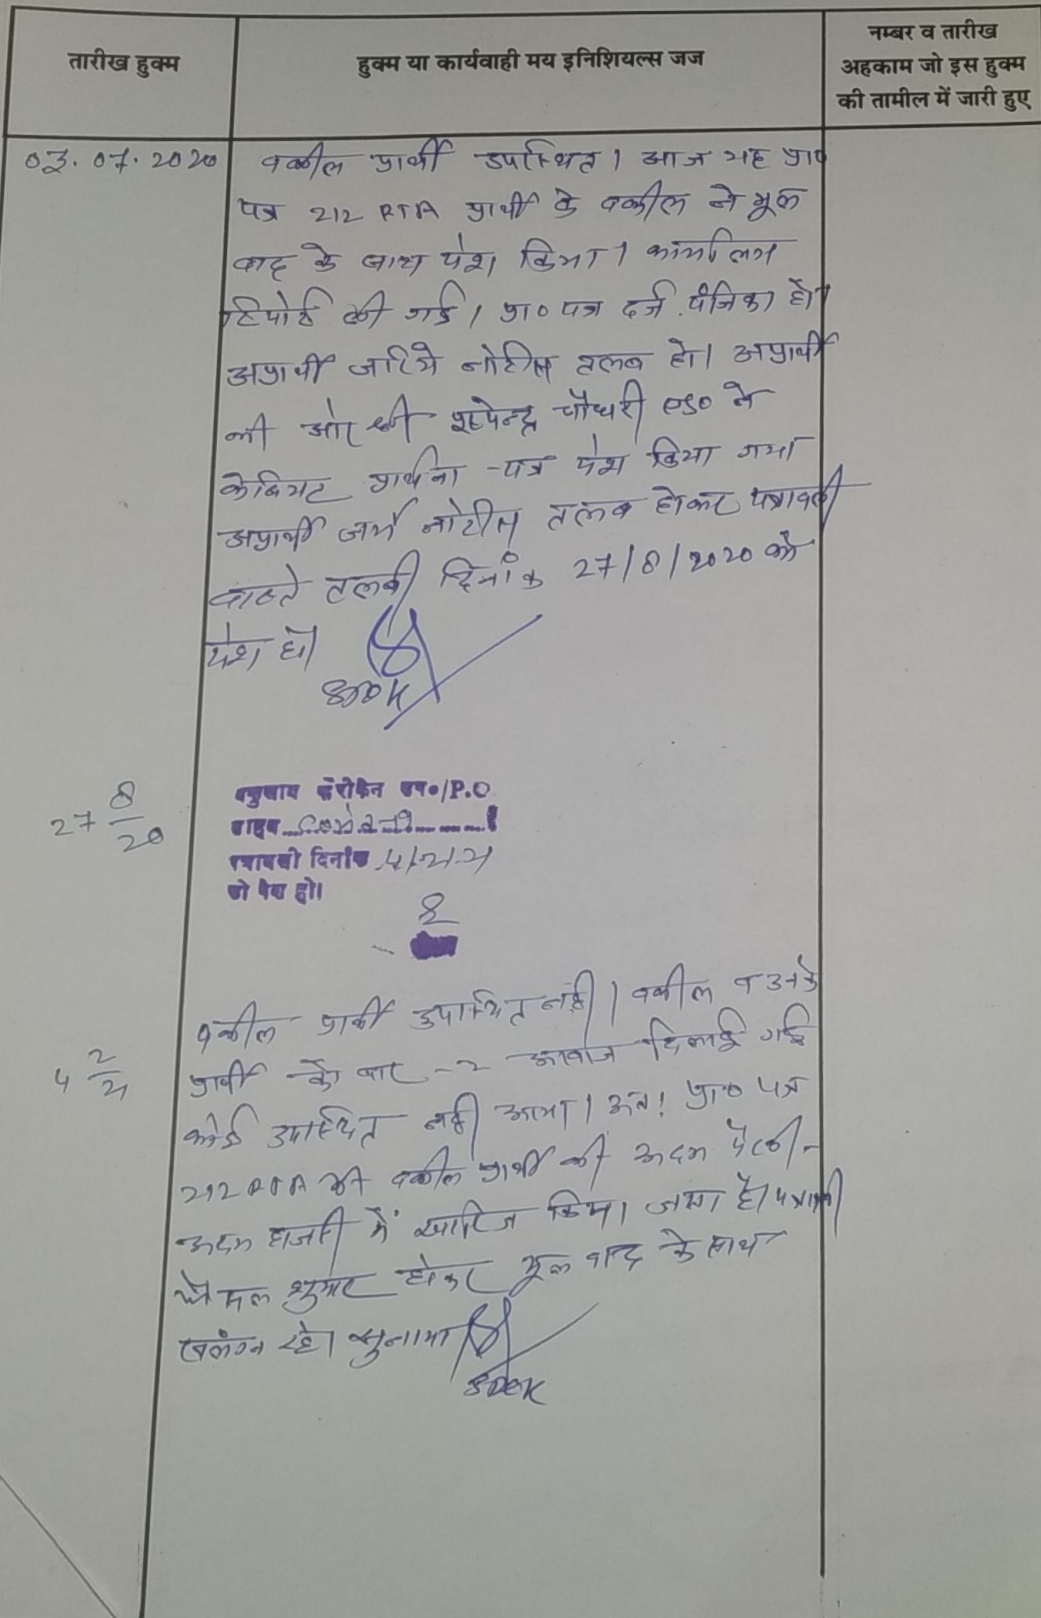 तारीख हुक्म
हुक्म या कार्यवाही मय इनिशियल्स जज
नम्बर व तारीख
अहकाम जो इस हुक्म
की तामील में जारी हुए
03.07.2020
वकील प्रार्थी उपस्थित। आज यह प्रा०
पत्र 212 RTA प्रार्थी के वकील ने मूल
वाद के साथ पेश किया। कार्यालय
रिपोर्ट की गई। प्रा० पत्र दर्ज पंजिका हो।
अप्रार्थी जरिये नोटिस तलब हो। अप्रार्थी
की ओर श्री चौधरी ने
केवियट प्रार्थना-पत्र पेश किया गया
अप्रार्थी जर्ये नोटीस तलब होकर पत्रावली
वास्ते तलबी दिनांक 27/8/2020 को
पेश हो।
27 8/20
P.O
पत्रावली दिनांक
को पेश हो।
4 2/21
वकील प्रार्थी उपस्थित नहीं। वकील व उनके
प्रार्थी को बार-2 आवाज दिलाई गई
कोई उपस्थित नहीं आया। अतः प्रा० पत्र
212 RTA को वकील प्रार्थी की अदम पैरवी-
अदम हाजरी में खारिज किया जाता है। पत्रावली
फैसल शुमार होकर मूल वाद के साथ
संलग्न रहे। सुनाया
SDOK